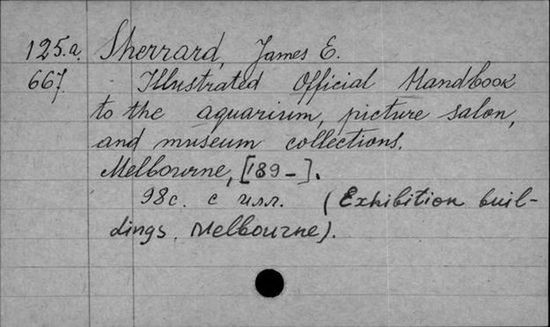 125.a. Sherrard, James E.
667. Illustrated Official Handbook
to the aquarium, picture salon,
and museum collections.
Melbourne, [189-].
98с. с илл. (Exhibition buil-
dings. Melbourne).